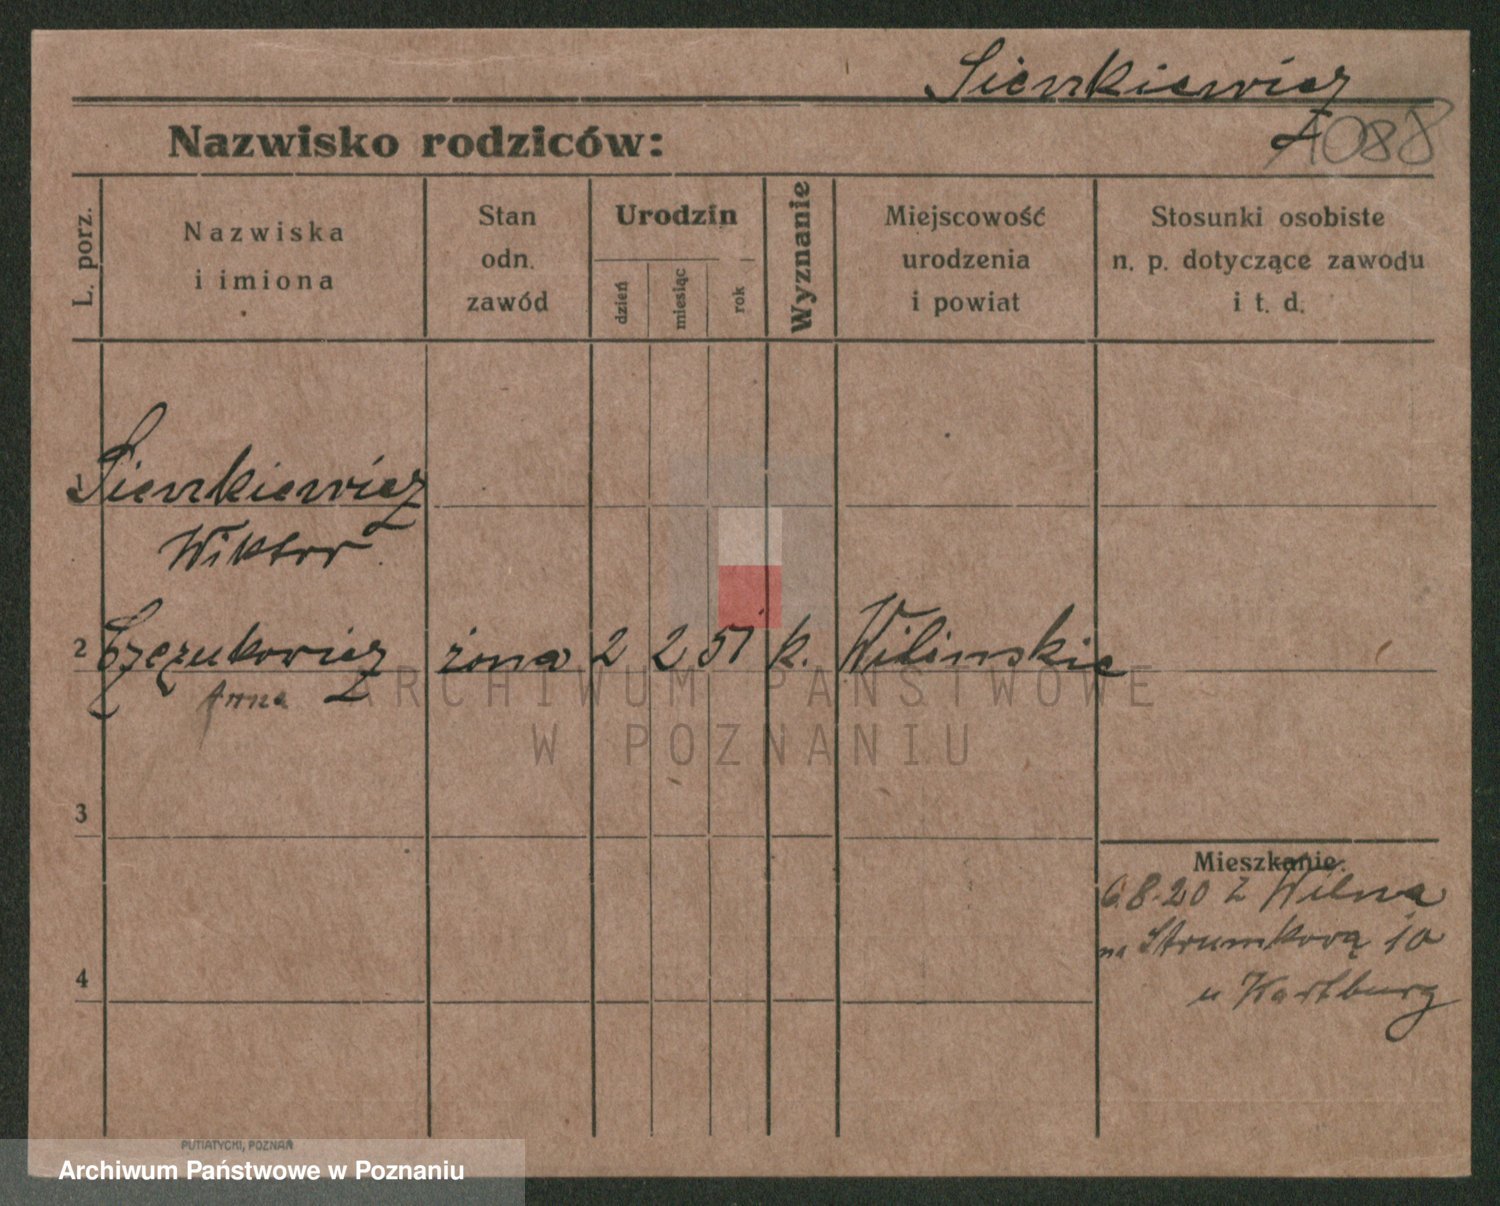 Sienkiewicz
1088
Nazwisko rodziców:
L. porz.
Nazwiska
i imiona
Stan
odn.
zawód
Urodzin
dzień
miesiąc
rok
Wyznanie
Miejscowość
urodzenia
i powiat
Stosunki osobiste
n. p. dotyczące zawodu
i t. d.
1 Sienkiewicz
Wiktor
2 żona 2 2 51 k. Wilenskie
Anna
3
4
Mieszkanie:
6.8.20 z Wilna
na Strumkową 10
u
ARCHIWUM PAŃSTWOWE
W POZNANIU
PUTIATYCKI, POZNAŃ
Archiwum Państwowe w Poznaniu